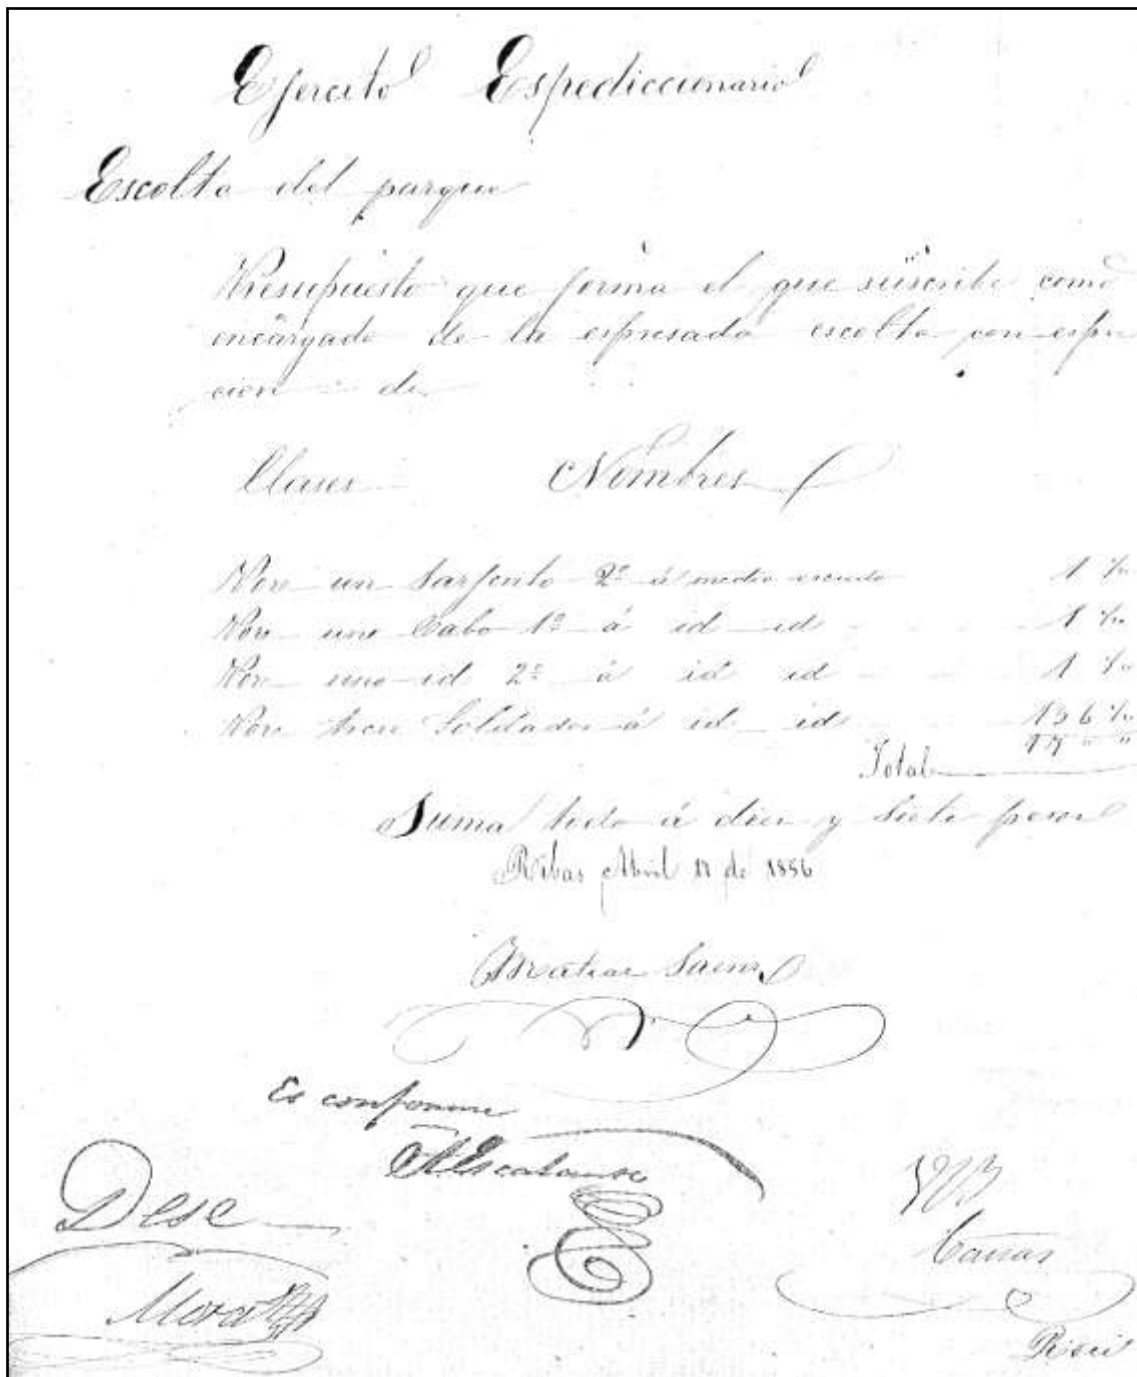 Ejercito Espediccionario
Escolta del parque
Presupuesto que forma el que suscribe como
encargado de la espresada escolta con espre
cion de
Clases Nombres
Por un Sarjento 2º á medio escudo 1
Por uno Cabo 1º á id id 1
Por uno id 2º á id id 1
Por trece Soldados á id id 13 6
17 " "
Total
Suma todo á diez y siete pesos
Ribas Abril 17 de 1856
Matias Saenz
Es conforme
Escalante
Dese
VºB
Cañas
Mora